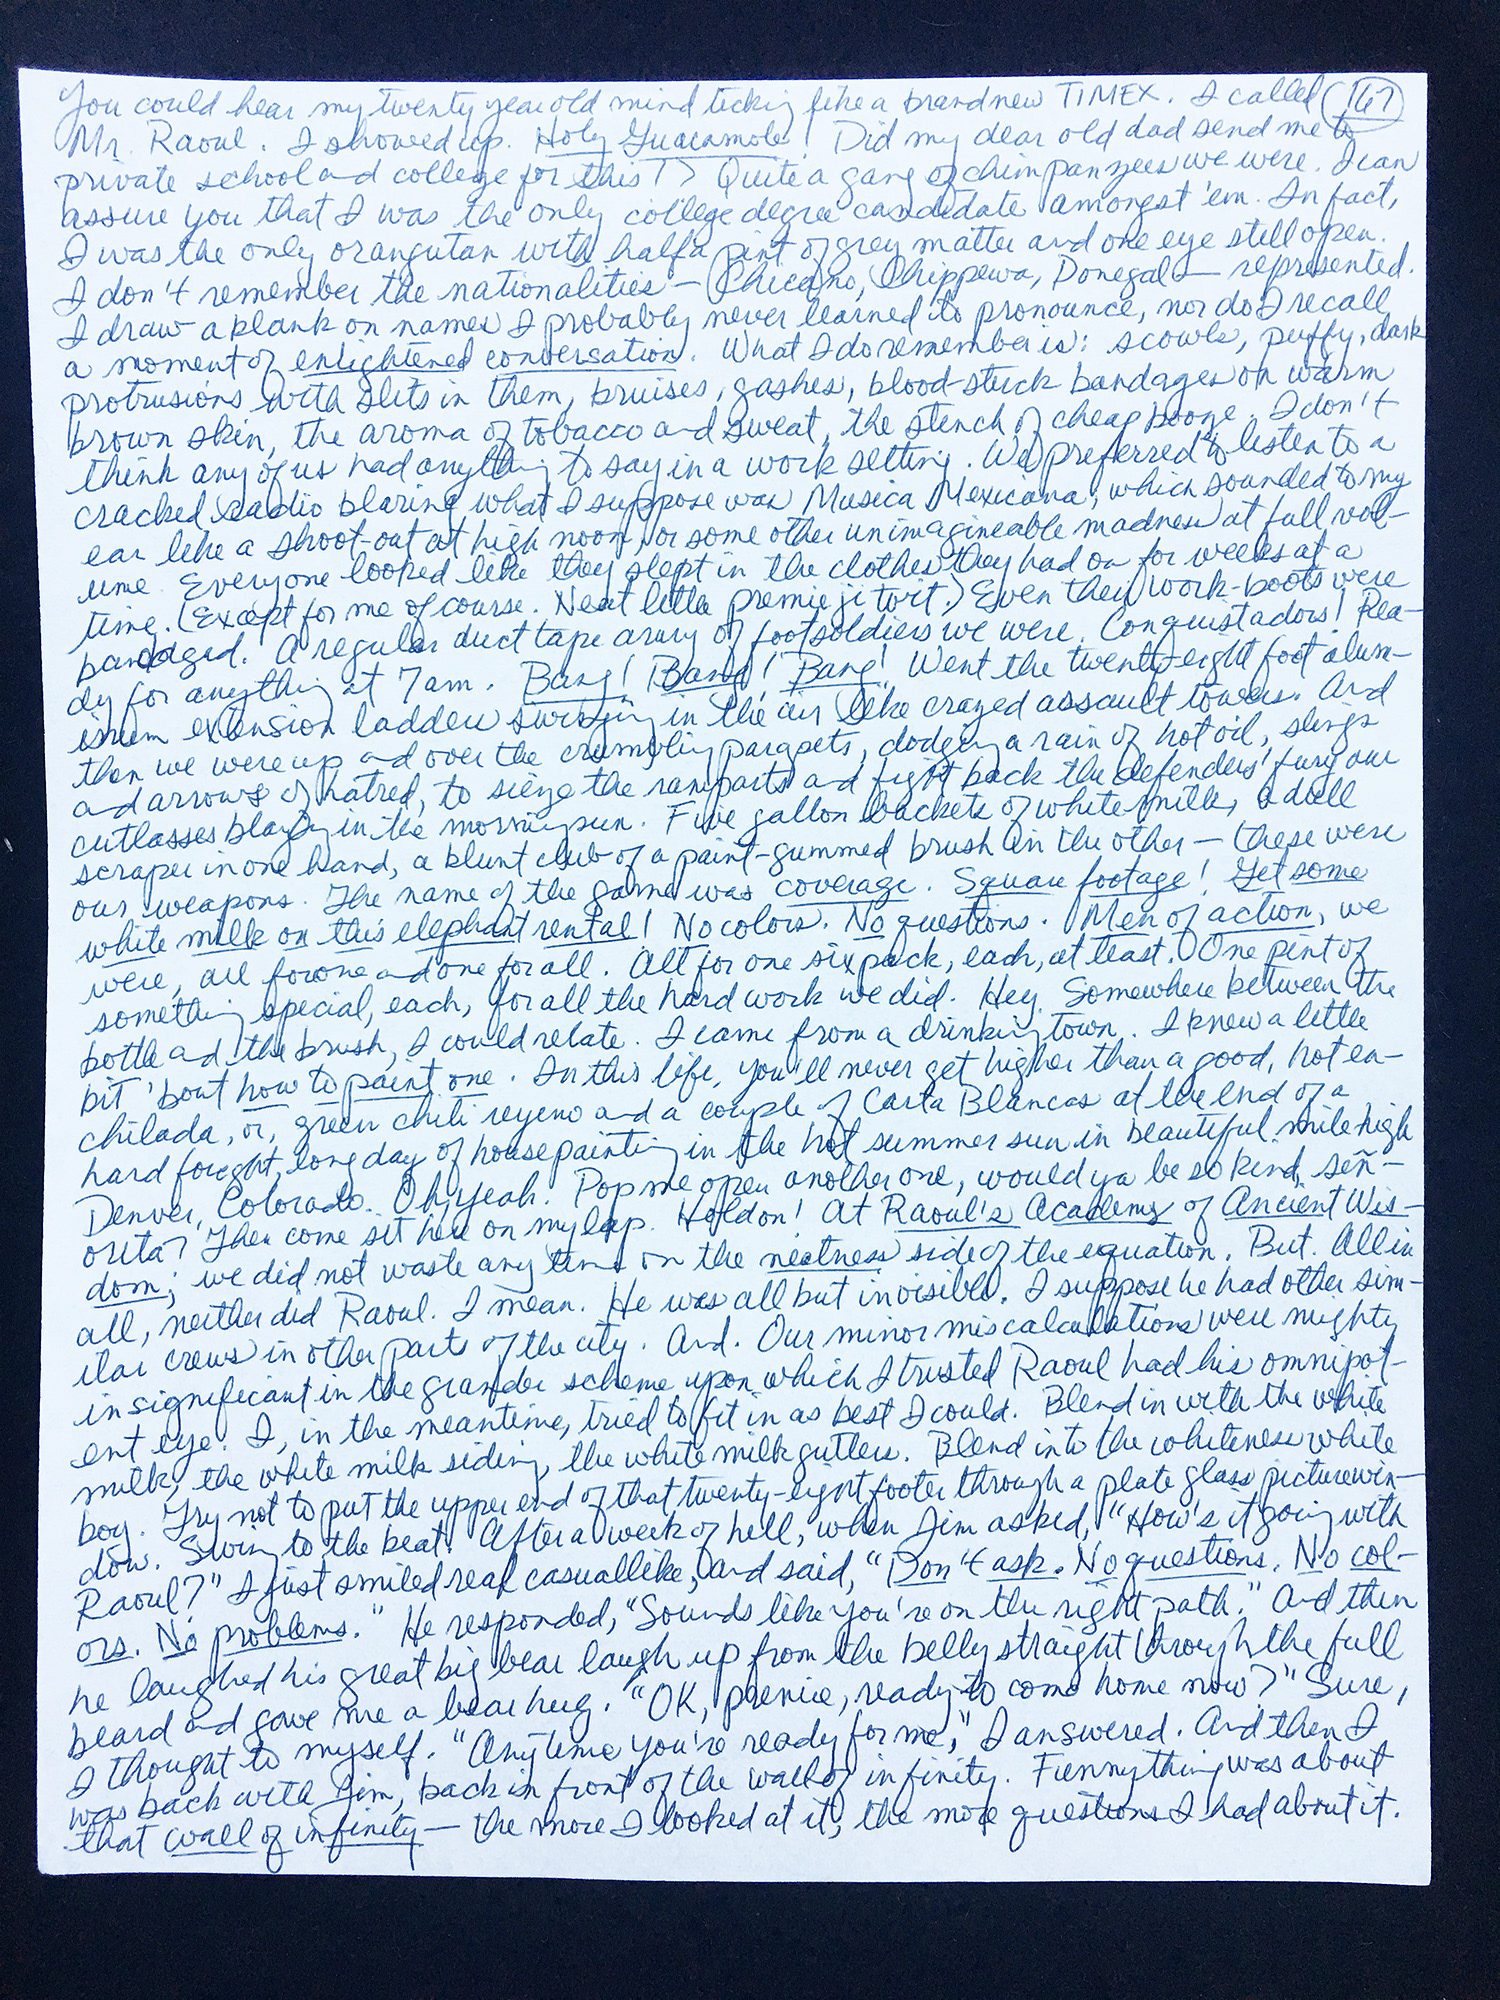 You could hear my twenty year old mind ticking like a brand new TIMEX. I called 167
Mr. Raoul. I showed up. Holy Guacamole! Did my dear old dad send me to
private school and college for this!? Quite a gang of chimpanzees we were. I can
assure you that I was the only college degree candidate amongst 'em. In fact,
I was the only orangutan with half a pint of grey matter and one eye still open.
I don't remember the nationalities – Chicano, Chippewa, Donegal – represented.
I draw a blank on names I probably never learned to pronounce, nor do I recall
a moment of enlightened conversation. What I do remember is: scowls, puffy, dark
protrusions with slits in them, bruises, gashes, blood-stuck bandages on warm
brown skin, the aroma of tobacco and sweat, the stench of cheap booze. I don't
think any of us had anything to say in a work setting. We preferred to listen to a
cracked radio blaring what I suppose was Musica Mexicana, which sounded to my
ear like a shoot-out at high noon, or some other unimagineable madness at full vol-
ume. Everyone looked like they slept in the clothes they had on for weeks at a
time. (Except for me of course. Neat little premie ji to it.) Even their work-boots were
bandaged. A regular duct tape army of footsoldiers we were. Conquistadors! Rea-
dy for anything at 7am. Bang! Bang! Bang! Went the twenty-eight foot alum-
inum extension ladders swinging in the air like crazed assault towers. And
then we were up and over the crumbling parapets, dodging a rain of hot oil, slings
and arrows of hatred, to sieze the ramparts and fight back the defenders' fury our
cutlasses blazing in the morning sun. Five gallon buckets of white milk, a dull
scraper in one hand, a blunt club of a paint-gummed brush in the other – these were
our weapons. The name of the game was coverage. Square footage! Get some
white milk on this elephant rental! No colors. No questions. Men of action, we
were, all for one and one for all. All for one six pack, each, at least. One pint of
something special, each, for all the hard work we did. Hey. Somewhere between the
bottle and the brush, I could relate. I came from a drinking town. I knew a little
bit 'bout how to paint one. In this life, you'll never get higher than a good, hot en-
chilada, or, green chili reyeno and a couple of Carta Blancas at the end of a
hard fought, long day of housepainting in the hot summer sun in beautiful mile high
Denver, Colorado. Oh, yeah. Pop me open another one, would ya be so kind, señ-
orita? Then come sit here on my lap. Hold on! At Raoul's Academy of Ancient Wis-
dom; we did not waste any time on the neatness side of the equation. But. All in
all, neither did Raoul. I mean. He was all but invisible. I suppose he had other sim-
ilar crews in other parts of the city. And. Our minor miscalculations were mighty
insignificant in the grander scheme upon which I trusted Raoul had his omnipot-
ent eye. I, in the meantime, tried to fit in as best I could. Blend in with the white
milk, the white milk siding, the white milk gutters. Blend into the whiteness white
boy. Try not to put the upper end of that twenty-eight footer through a plate glass picture win-
dow. Swing to the beat. After a week of hell, when Jim asked, "How's it going with
Raoul?" I just smiled real casual like, and said, "Don't ask. No questions. No col-
ors. No problems." He responded, "Sounds like you're on the right path." And then
he laughed his great big bear laugh up from the belly straight through the full
beard and gave me a bear hug. "OK, premie, ready to come home now?" Sure,
I thought to myself. "Anytime you're ready for me," I answered. And then I
was back with Jim, back in front of the wall of infinity. Funny thing was about
that wall of infinity – the more I looked at it, the more questions I had about it.